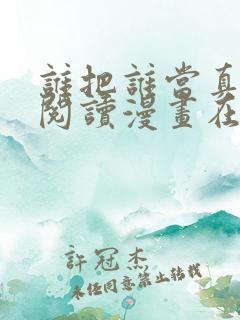 誰把誰當真
閱讀漫畫在
許冠杰
未经同意禁止转载